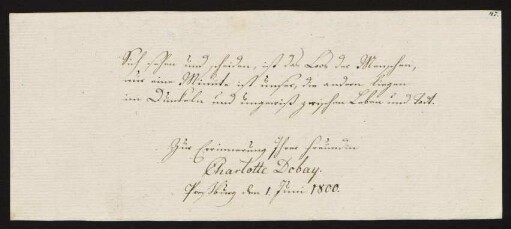 163.
Sich sehen und scheiden, ist das Loos der Menschen,
nur eine Minute ist unser, die andern liegen
im Dunkeln und ungewiß zwischen Leben und Tod.
Zur Erinnerung Ihrer Freundin
Charlotte Dobay.
Preßburg den 1. Juni 1800.